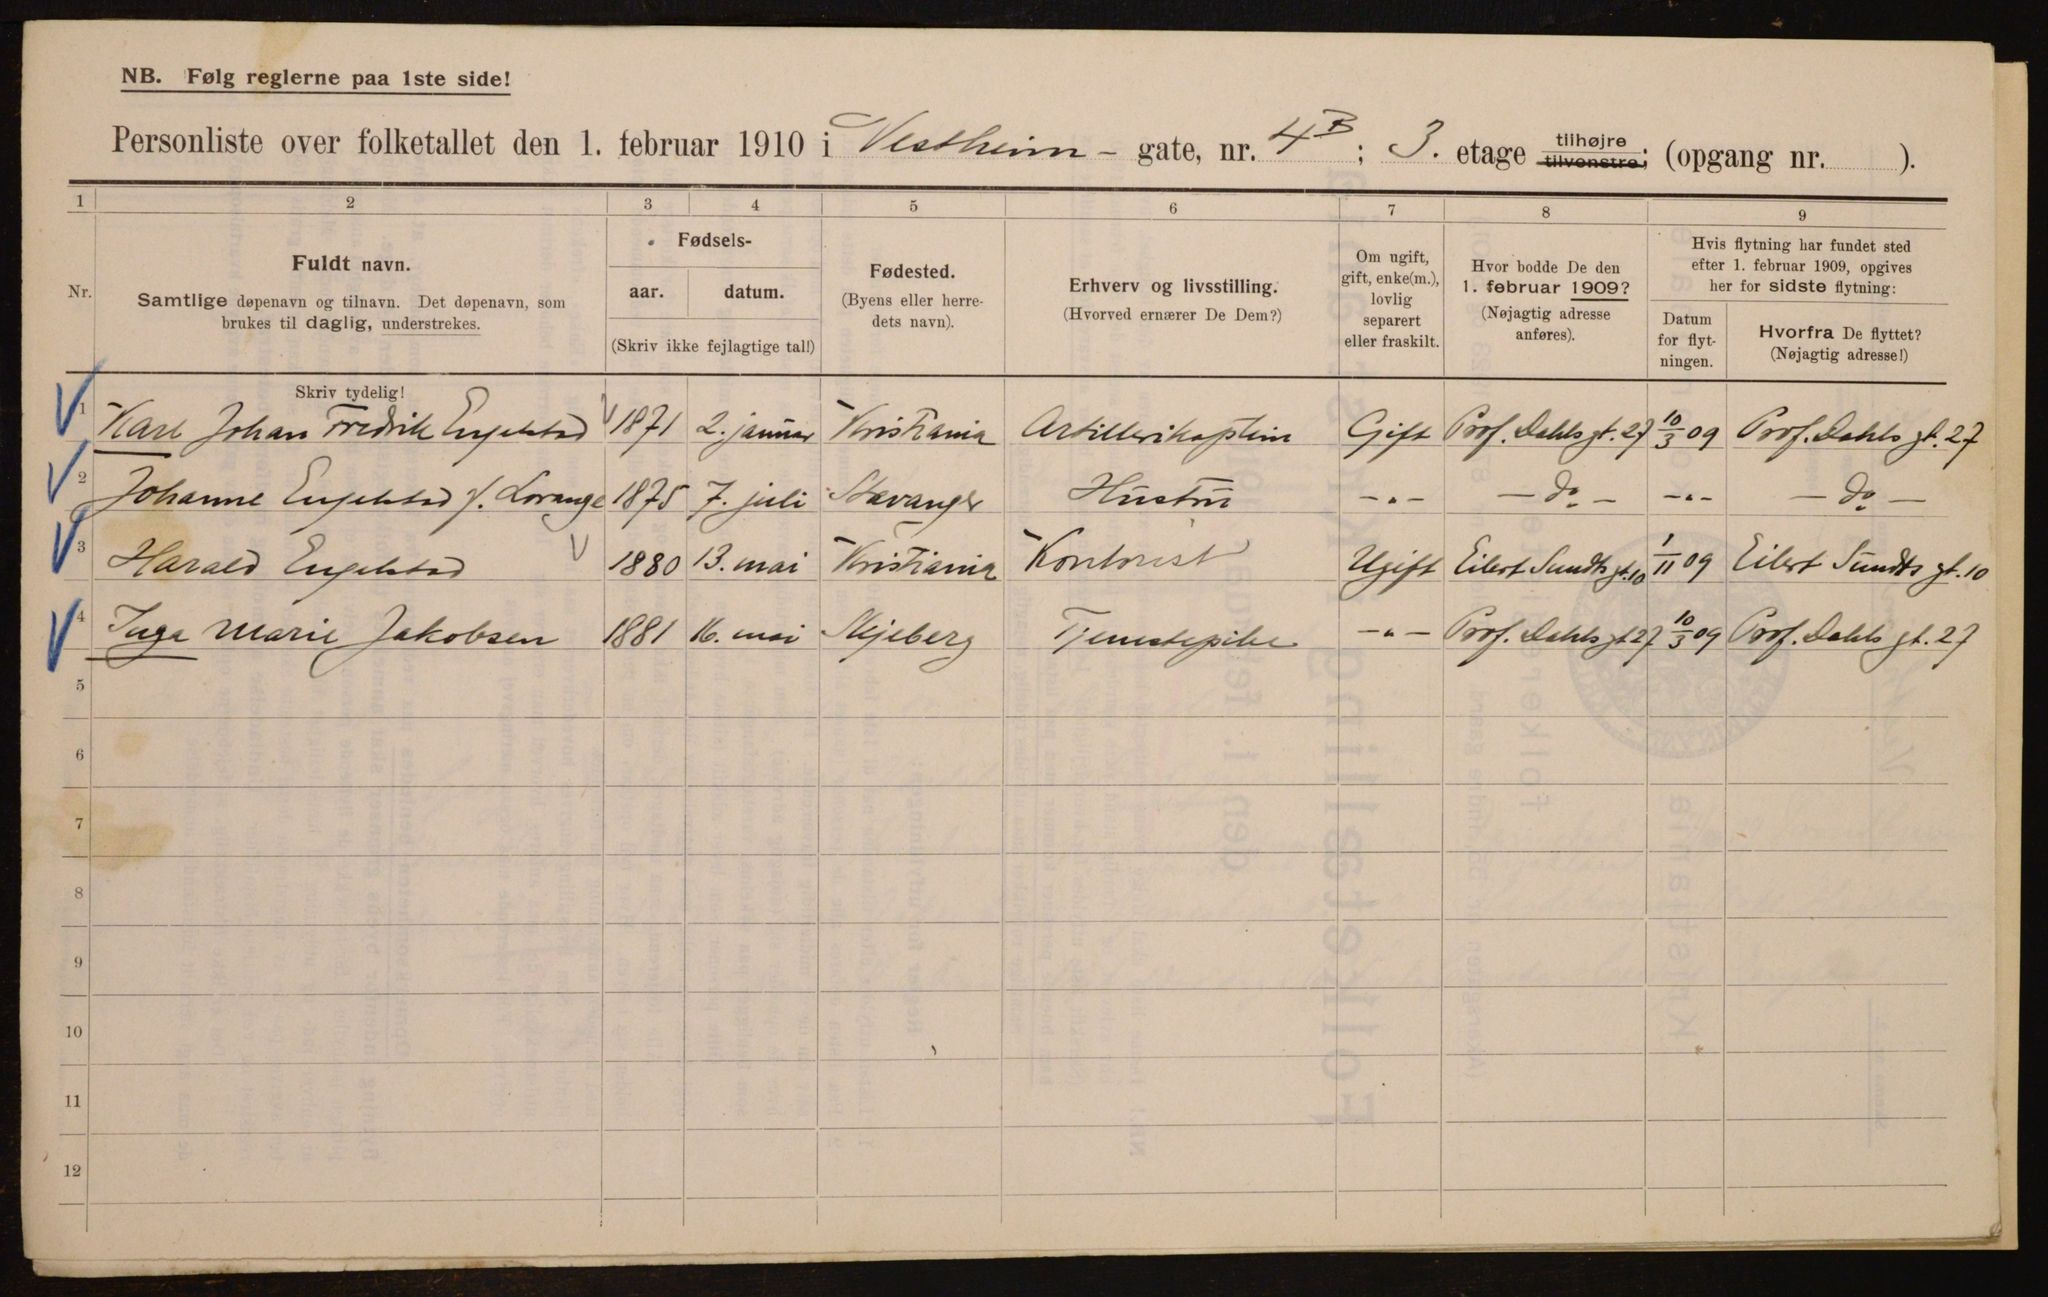 NB. Følg reglerne paa 1ste side!
Personliste over folketallet den 1. februar 1910 i Vestheim - gate, nr. 4B ; 3. etage tilhøjre tilvenstre; (opgang nr. ).
1 2 3 4 5 6 7 8 9
Nr.
Fuldt navn.
Samtlige døpenavn og tilnavn. Det døpenavn, som
brukes til daglig, understrekes.
Skriv tydelig!
Fødsels-
aar. datum.
(Skriv ikke fejlagtige tal!)
Fødested.
(Byens eller herre-
dets navn).
Erhverv og livsstilling.
(Hvorved ernærer De Dem?)
Om ugift,
gift, enke(m.),
lovlig
separert
eller fraskilt.
Hvor bodde De den
1. februar 1909?
(Nøjagtig adresse
anføres).
Hvis flytning har fundet sted
efter 1. februar 1909, opgives
her for sidste flytning:
Datum
for flyt-
ningen.
Hvorfra De flyttet?
(Nøjagtig adresse!)
1 Karl Johan Fredrik Engelstad 1871 2. januar Kristiania Artillerikaptein Gift Prof. Dahls gt. 27 10/3 09 Prof. Dahls gt. 27
2 Johanne Engelstad f. Lorange 1875 7. juli Stavanger Hustru -„- - do - -„- - do -
3 Harald Engelstad 1880 13. mai Kristiania Kontorist Ugift Eilert Sundts gt. 10 1/11 09 Eilert Sundts gt. 10
4 Inga Marie Jakobsen 1881 16. mai Skjeberg Tjenestepike -„- Prof. Dahls gt 27 10/3 09 Prof. Dahls gt. 27
5
6
7
8
9
10
11
12